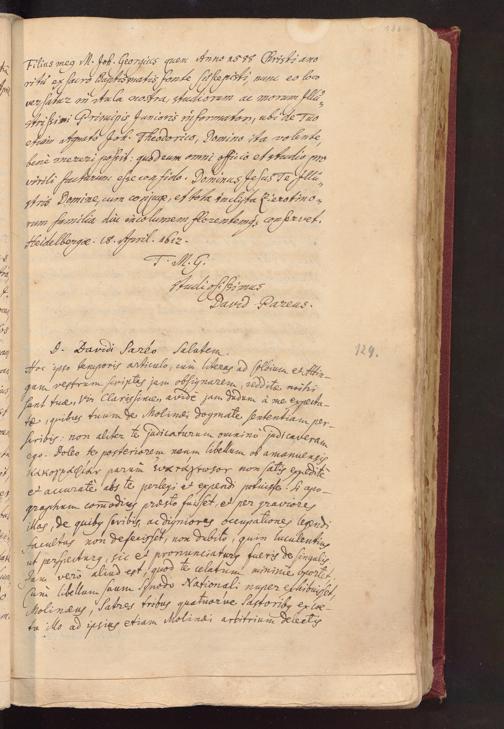 Filius meg M. Joh. Georgius quem Anno 1598 Christi ano
ritu ex sacro Baptismatis fonte suscepisti, nunc eo loco
versatur in aula nostra, studiorum ac morum Illu=
strissimi Principis Junioris informator, ubi de Tuo
etiam Joh. Theodorico, Domino ita volente,
benè mereri possit: quod eum omni officio et studio pro
virili facturum esse confido. Dominus Jesus Te Illu=
stris Domine, cum conjuge, et tota inclyta Zierotino=
rum familia diu incolumem florentemq, conservet.
Heidelbergæ. 18. April. 1612.
T. M. G.
studiosissimus
David Pareus.
129.
D. Davidi Paréo Salutem.
Hoc ipso temporis articulo, cum literas ad Poldium et
quam vestrum scriptas jam obsignarem, redditæ mihi
sunt tuæ, Vir Clarissime, avide jam dudum à me expecta-
tæ, quibus tuum de Molinæi dogmate sententiam per-
scribis: non aliter te judicaturum omnino judicaveram
ego. Doleo te posteriorem libellum ob amanuensis
κακογραφίας non satis expeditè
et accuratè abs te perlegi et expendi potuisse. Si apo-
graphum commodius præsto fuisset, et per graviores
illas, de quibus scribis, ac digniores occupationes legendi
facultas non defuisset, non dubito, quin luculentius
ut perspecturus, sic et pronunciaturus fueris de singulis
Jam verò aliud est, quod te celatum minimè oportet,
Cum libellum suum Synodo Nationali nuper exhibuisset,
Molinæus, Patres tribus quatuorve Pastoribus
illo ad ipsius etiam Molinæi arbitrium delectis